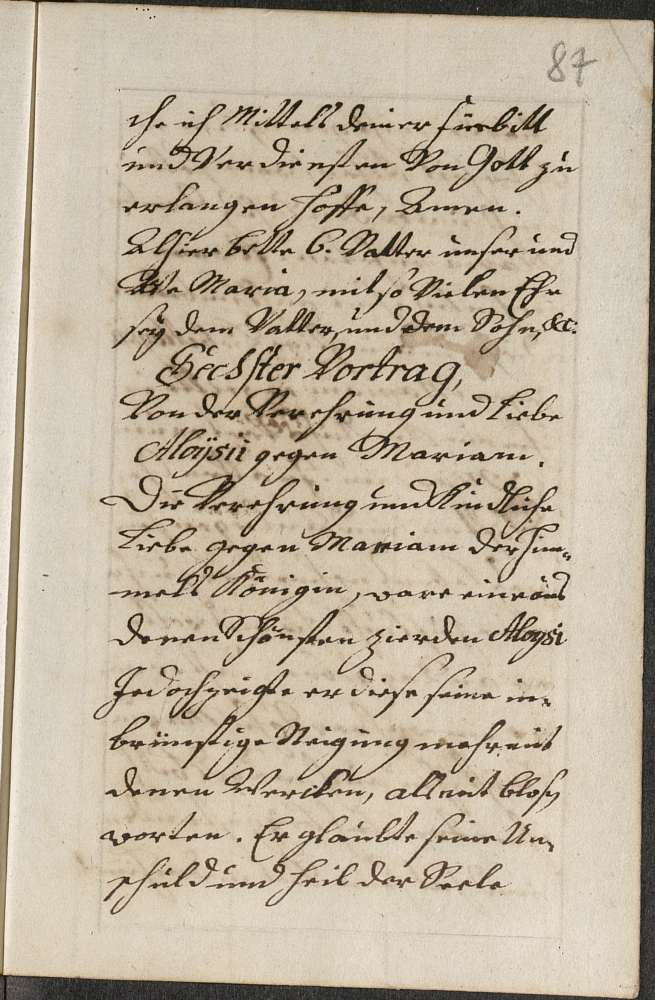 87
che ich Mittels deiner fürbitt
und Verdiensten Von Gott zu
erlangen hoffe, Amen.
Alhier bette 6. Vatter unser und
Ave Maria, mit so Vielen Ehr
sey dem Vatter, und dem Sohn, &c.
Sechster Vortrag,
Von der Verehrung und Liebe
Aloÿsii gegen Mariam.
Die Verehrung und Kindliche
Liebe gegen Mariam der him„
mels Königin, ware eine aus
denen Schönsten zierden Aloysi
Jedoch zeigte er diese seine in„
brünstige Neigung mehr mit
denen Wercken, als mit blosen
worten. Er glaubte seine Un„
schuld und heil der Seele